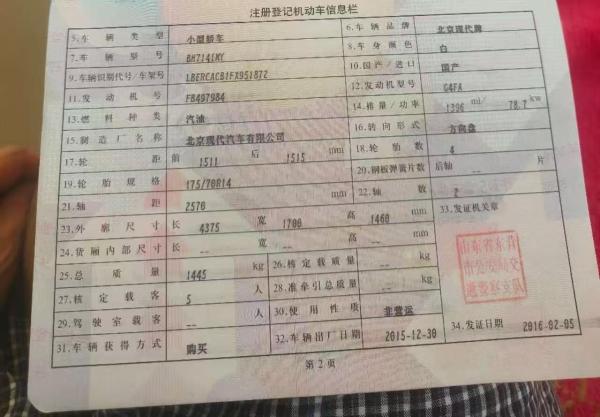 注册登记机动车信息栏
5.车辆类型 小型轿车 6.车辆品牌 北京现代牌
7.车辆型号 BH7141MY 8.车身颜色 白
9.车辆识别代号/车架号 LBERCACB1FX951872 10.国产/进口 国产
11.发动机号 FB497984 12.发动机型号 G4FA
13.燃料种类 汽油 14.排量/功率 1396 ml/ 78.7 kw
15.制造厂名称 北京现代汽车有限公司 16.转向形式 方向盘
17.轮距 前 1511 后 1515 mm 18.轮胎数 4
19.轮胎规格 175/70R14 20.钢板弹簧片数 后轴 -- 片
21.轴距 2570 mm 22.轴数 2
23.外廓尺寸 长 4375 宽 1700 高 1460 mm 33.发证机关章
24.货厢内部尺寸 长 -- 宽 -- 高 -- mm
25.总质量 1445 kg 26.核定载质量 -- kg
27.核定载客 5 人 28.准牵引总质量 -- kg
29.驾驶室载客 -- 人 30.使用性质 非营运
31.车辆获得方式 购买 32.车辆出厂日期 2015-12-30 34.发证日期 2016-02-05
第2页